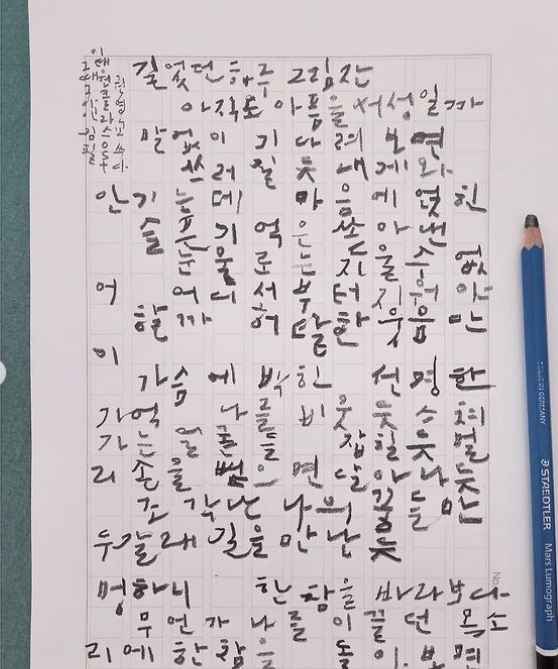 이태원클라쓰
그때 그 아인 김필
길었던 하루 그림잔
아직도 아픔을 서성일까
말없이 기다려 보면
쓰러질 듯 내게 와
안기는데 마음에 얹힌
슬픈 기억은 쏟아낸
눈물로는 지울 수 없
어 어디서부터 지워야
할까 허탈한 웃음만
이
가슴에 박힌 선명한
기억 나를 비웃듯 스쳐
가는 얼굴들 잡힐 듯 멀
리 손을 뻗으면 달아나듯
조각난 나의 꿈들만
두 갈래 길을 만난 듯
멍하니 한참을 바라보다
무언가 나를 이끌던 목소
리에 한참을 돌아보면
STAEDTLER Mars Lumograph